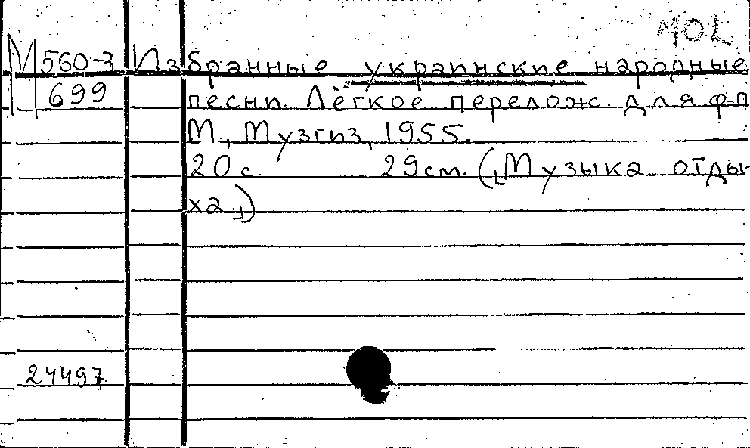 МОL
М560-3 Избранные украинские народные
699 песни. Лёгкое перелож. для фп
М., Музгиз, 1955.
20с 29см. („Музыка отды-
ха„)
24497